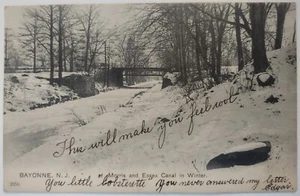 This will make you feel cool
BAYONNE, N. J.
Morris and Essex Canal in Winter.
You little Lobsterette
You never answered my letter.